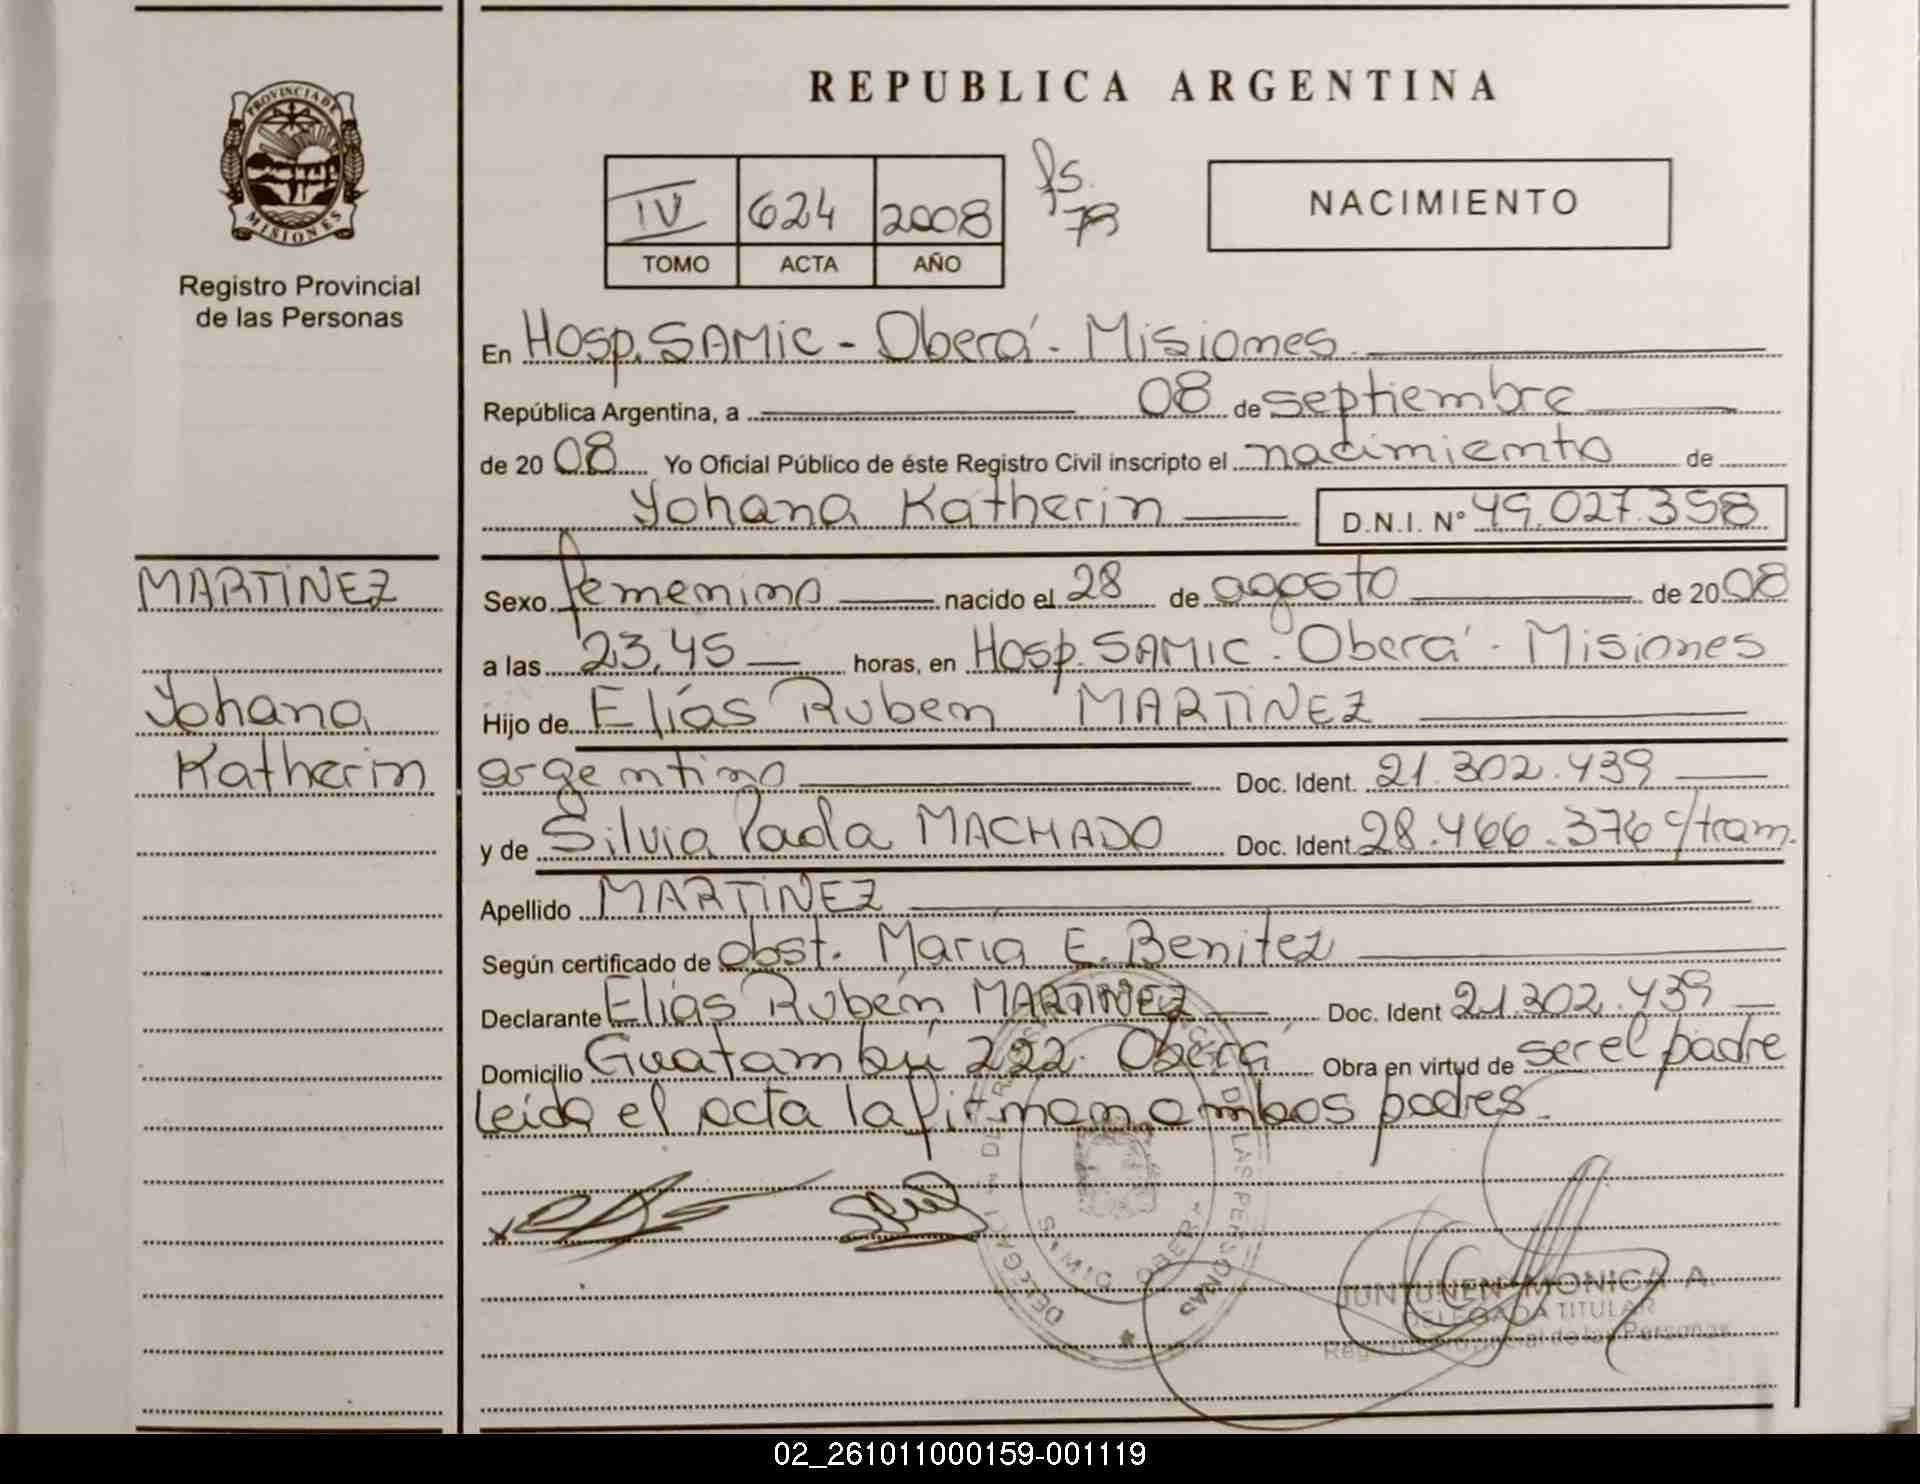 PROVINCIA DE
MISIONES
Registro Provincial
de las Personas
MARTINEZ
Yohana
Katherin
REPUBLICA ARGENTINA
IV 624 2008
TOMO ACTA AÑO
fs.
79
NACIMIENTO
En Hosp. SAMIC - Oberá - Misiones
República Argentina, a 08 de septiembre
de 2008 Yo Oficial Público de éste Registro Civil inscripto el nacimiento de
Yohana Katherin D.N.I. N° 49.027.358
Sexo femenino nacido el 28 de agosto de 2008
a las 23,45 horas, en Hosp. SAMIC - Oberá - Misiones
Hijo de Elías Ruben MARTINEZ
argentino Doc. Ident. 21.302.439
y de Silvia Paola MACHADO Doc. Ident. 28.466.376 c/tram.
Apellido MARTINEZ
Según certificado de obst. María E. Benitez
Declarante Elías Rubén MARTINEZ Doc. Ident 21.302.439
Domicilio Guatambú 222. Oberá Obra en virtud de ser el padre
leída el acta la firman ambos padres.
DE LAS PERSONAS
JUNTUNEN MONICA A.
DELEGADA TITULAR
Registro Provincial de las Personas
02_261011000159-001119